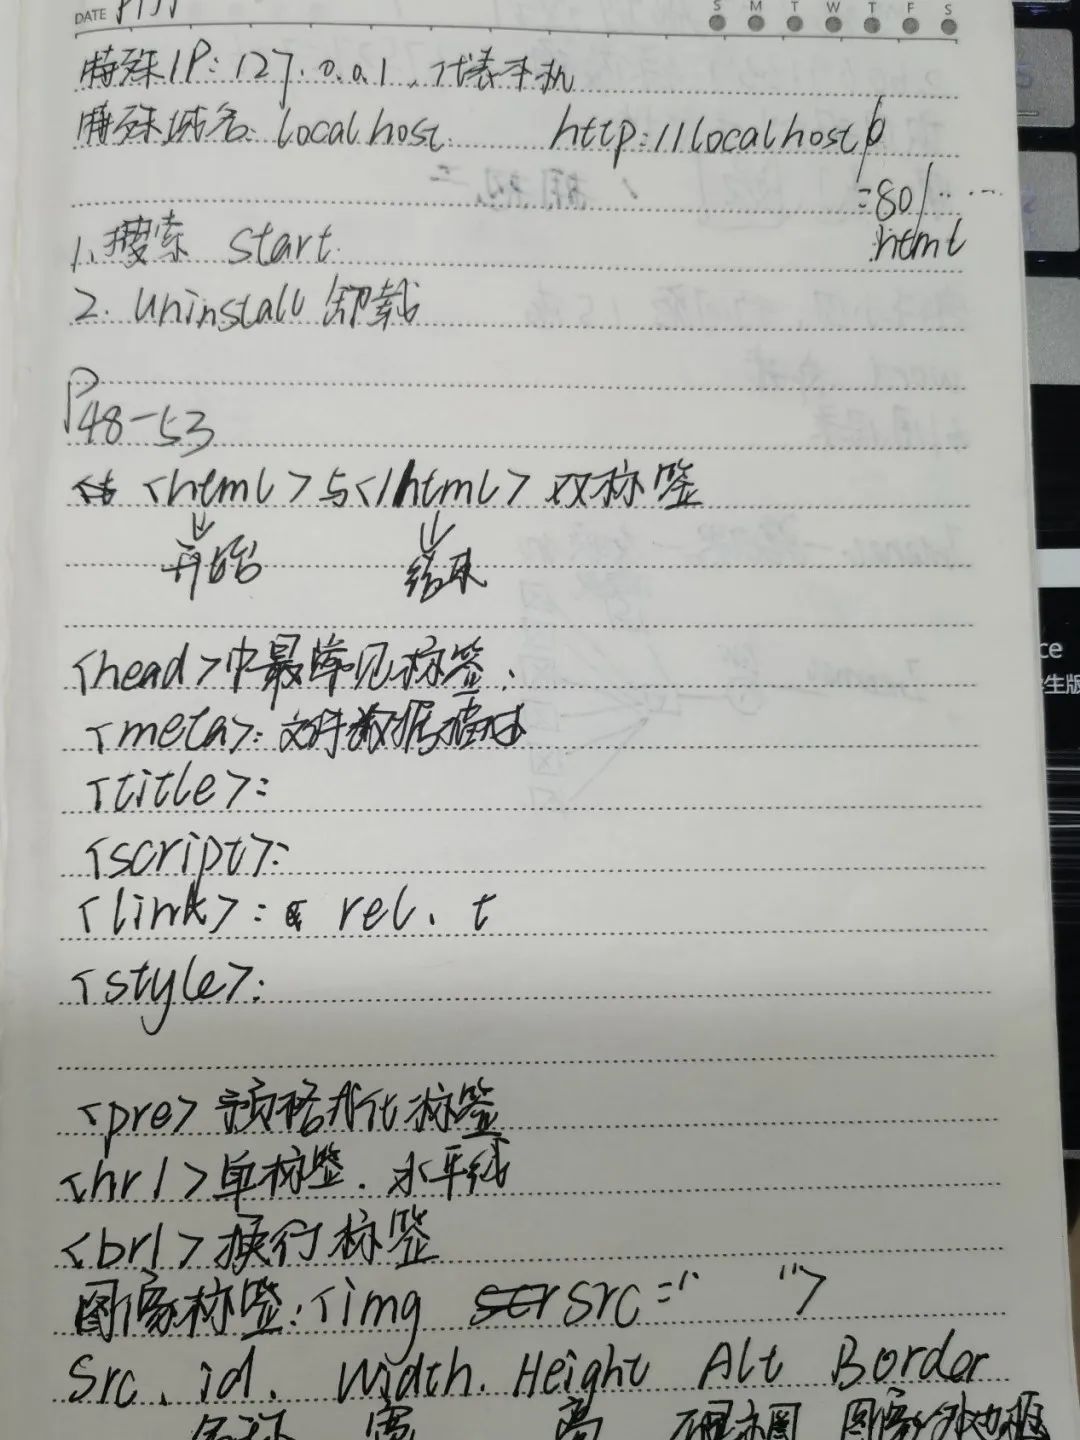 DATE
S M T W T F S
特殊IP: 127.0.0.1、代表手机
特殊域名: localhost http://localhost
:80/......
.html
1、搜索 start
2. uninstall 卸载
P48-53
<html>与</html>双标签
开始 结束
<head>中最常见标签:
<meta>: 文件数据描述
<title>:
<script>:
<link>: rel、t
<style>:
<pre>预格式化标签
<hr/>单标签、水平线
<br/>换行标签
图像标签:<img src=" ">
Src、id、Width、Height Alt Border
名称 宽 高 图像外边框
ce
生版